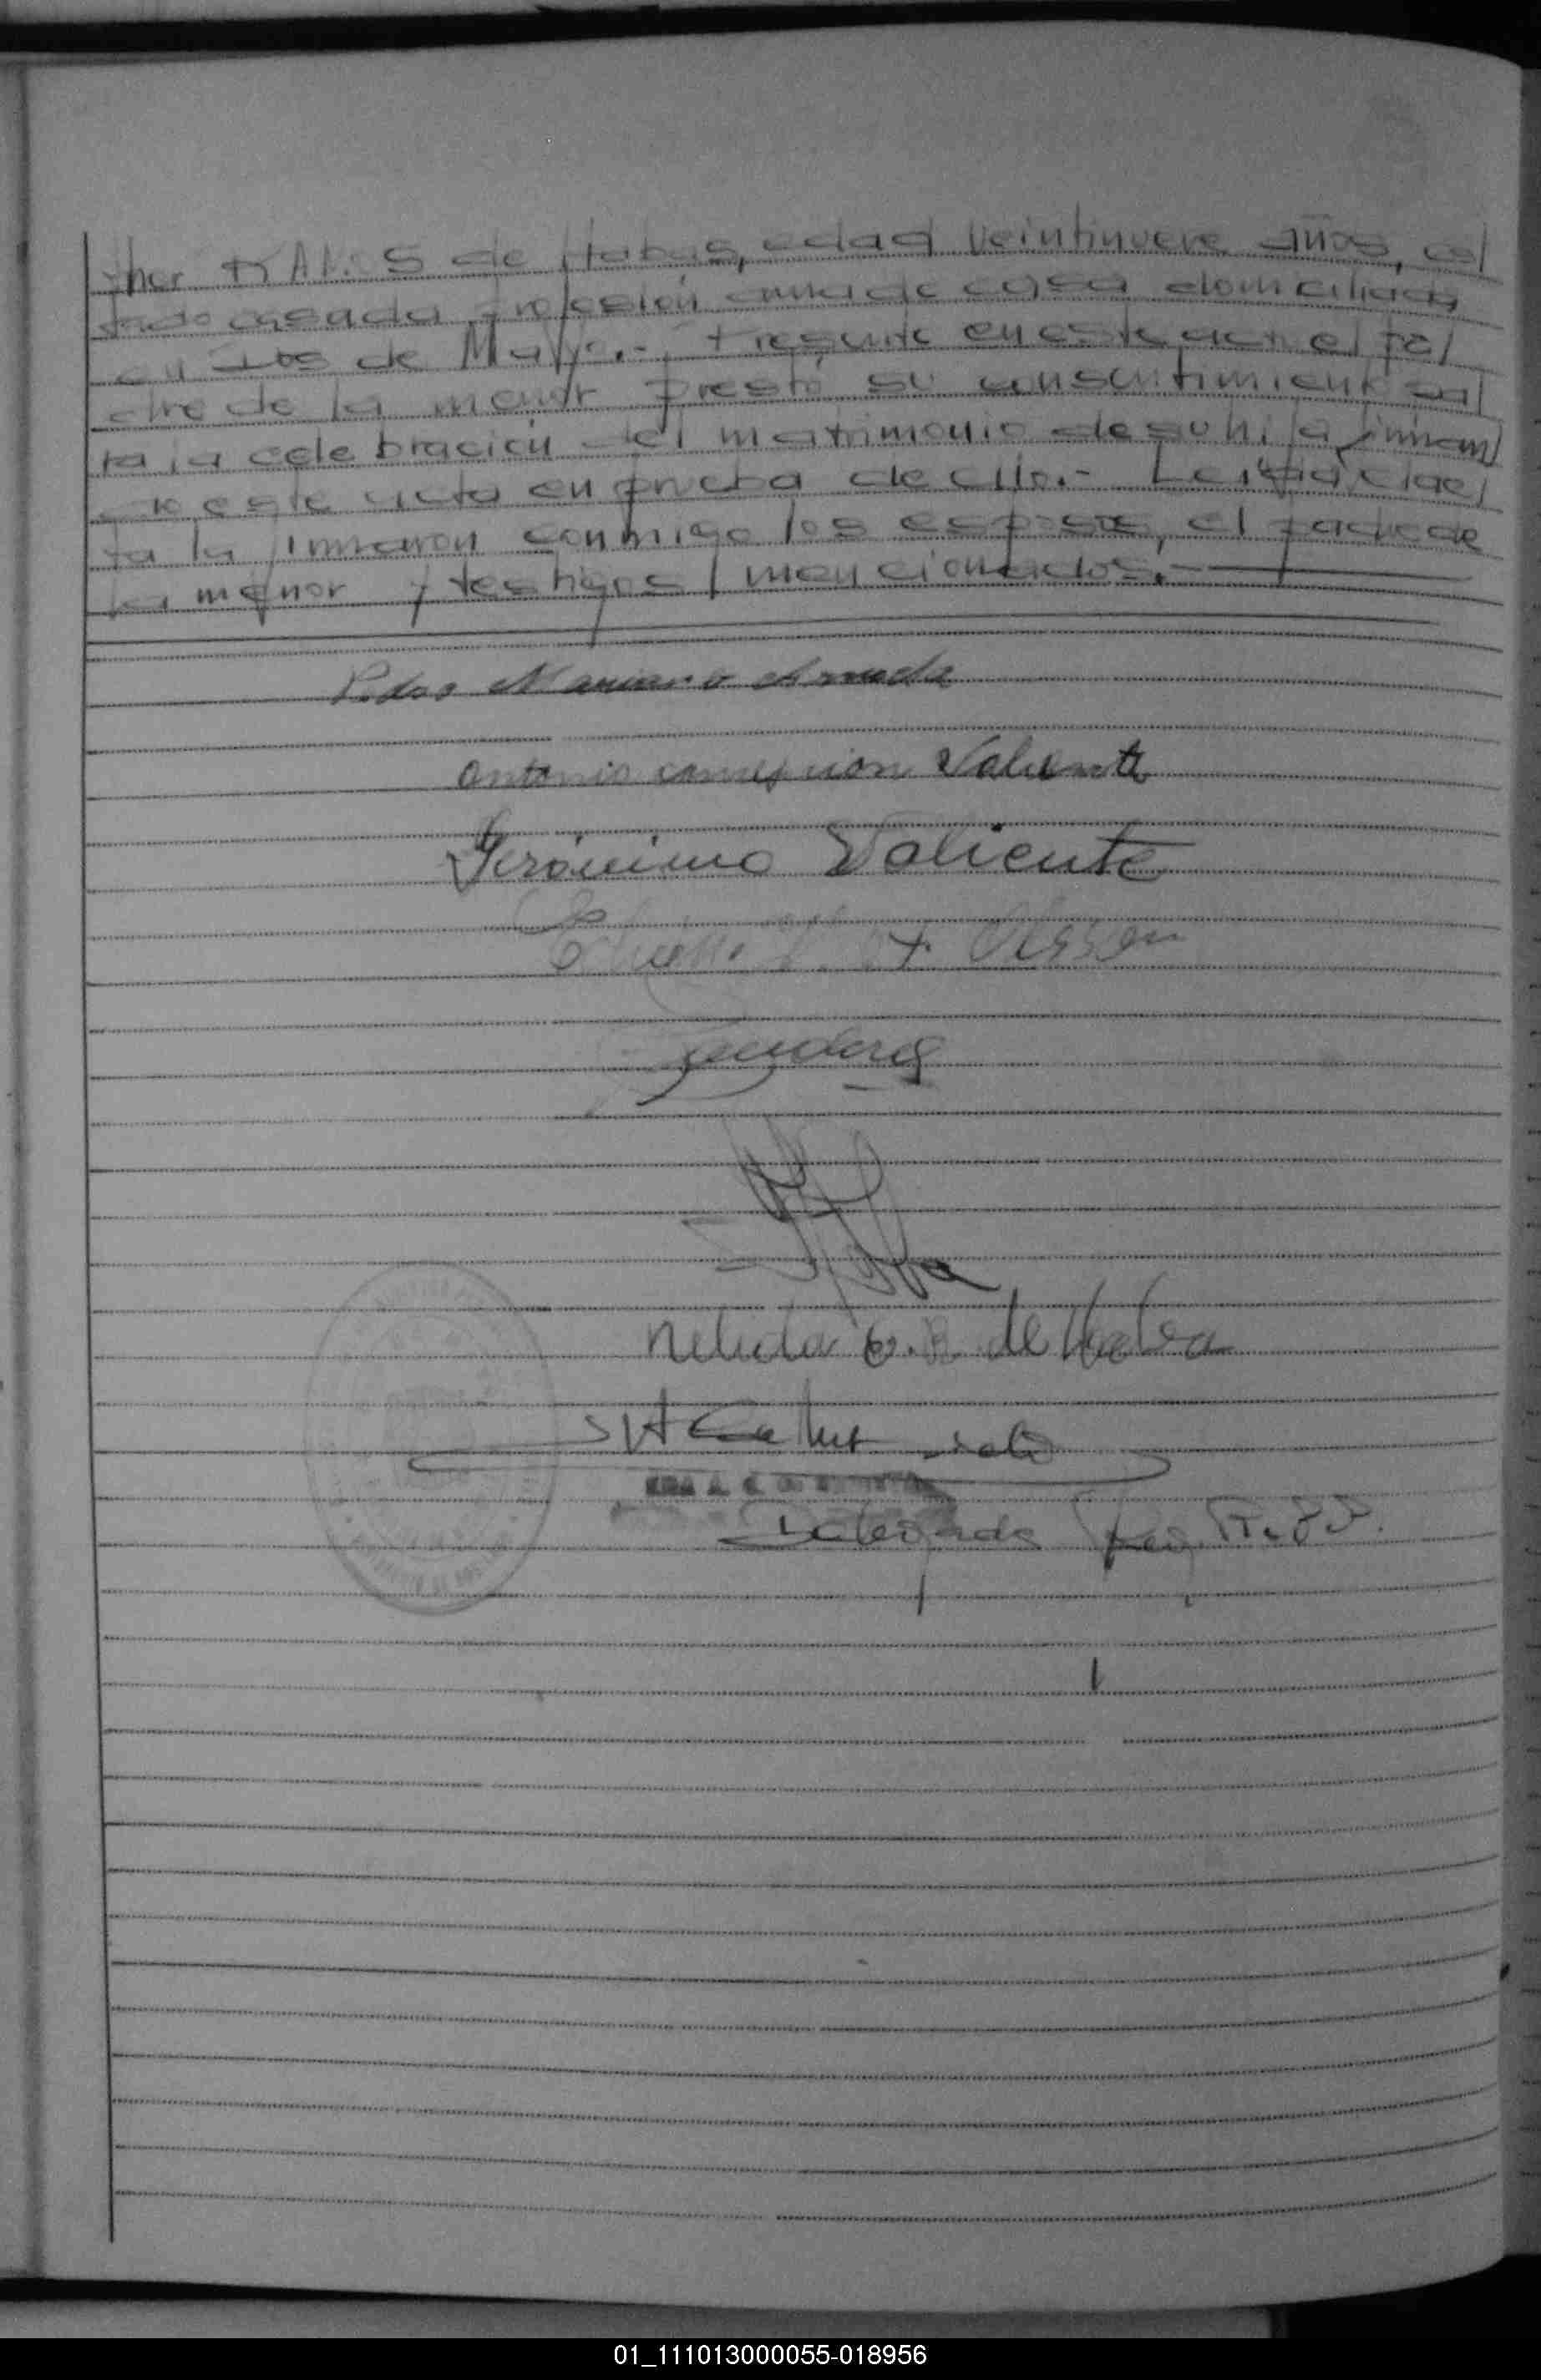 ther RAMOS de Habas, edad veintinueve años, es/
tado casada profesión ama de casa domiciliada
en Dos de Mayo.- Presente en este acto el pa/
dre de la menor prestó su consentimiento pa/
ra la celebración del matrimonio de su hija firman/
do este acta en prueba de ello.- Leida el ac/
ta la firmaron conmigo los esposos, el padre de
la menor y testigos mencionados.-
Pedro Mariano Arruda
Antonia concepcion Valiente
Gerónimo Valiente
Olsson
Nelida E. R. de Haba
Delegada Reg.
01_111013000055-018956